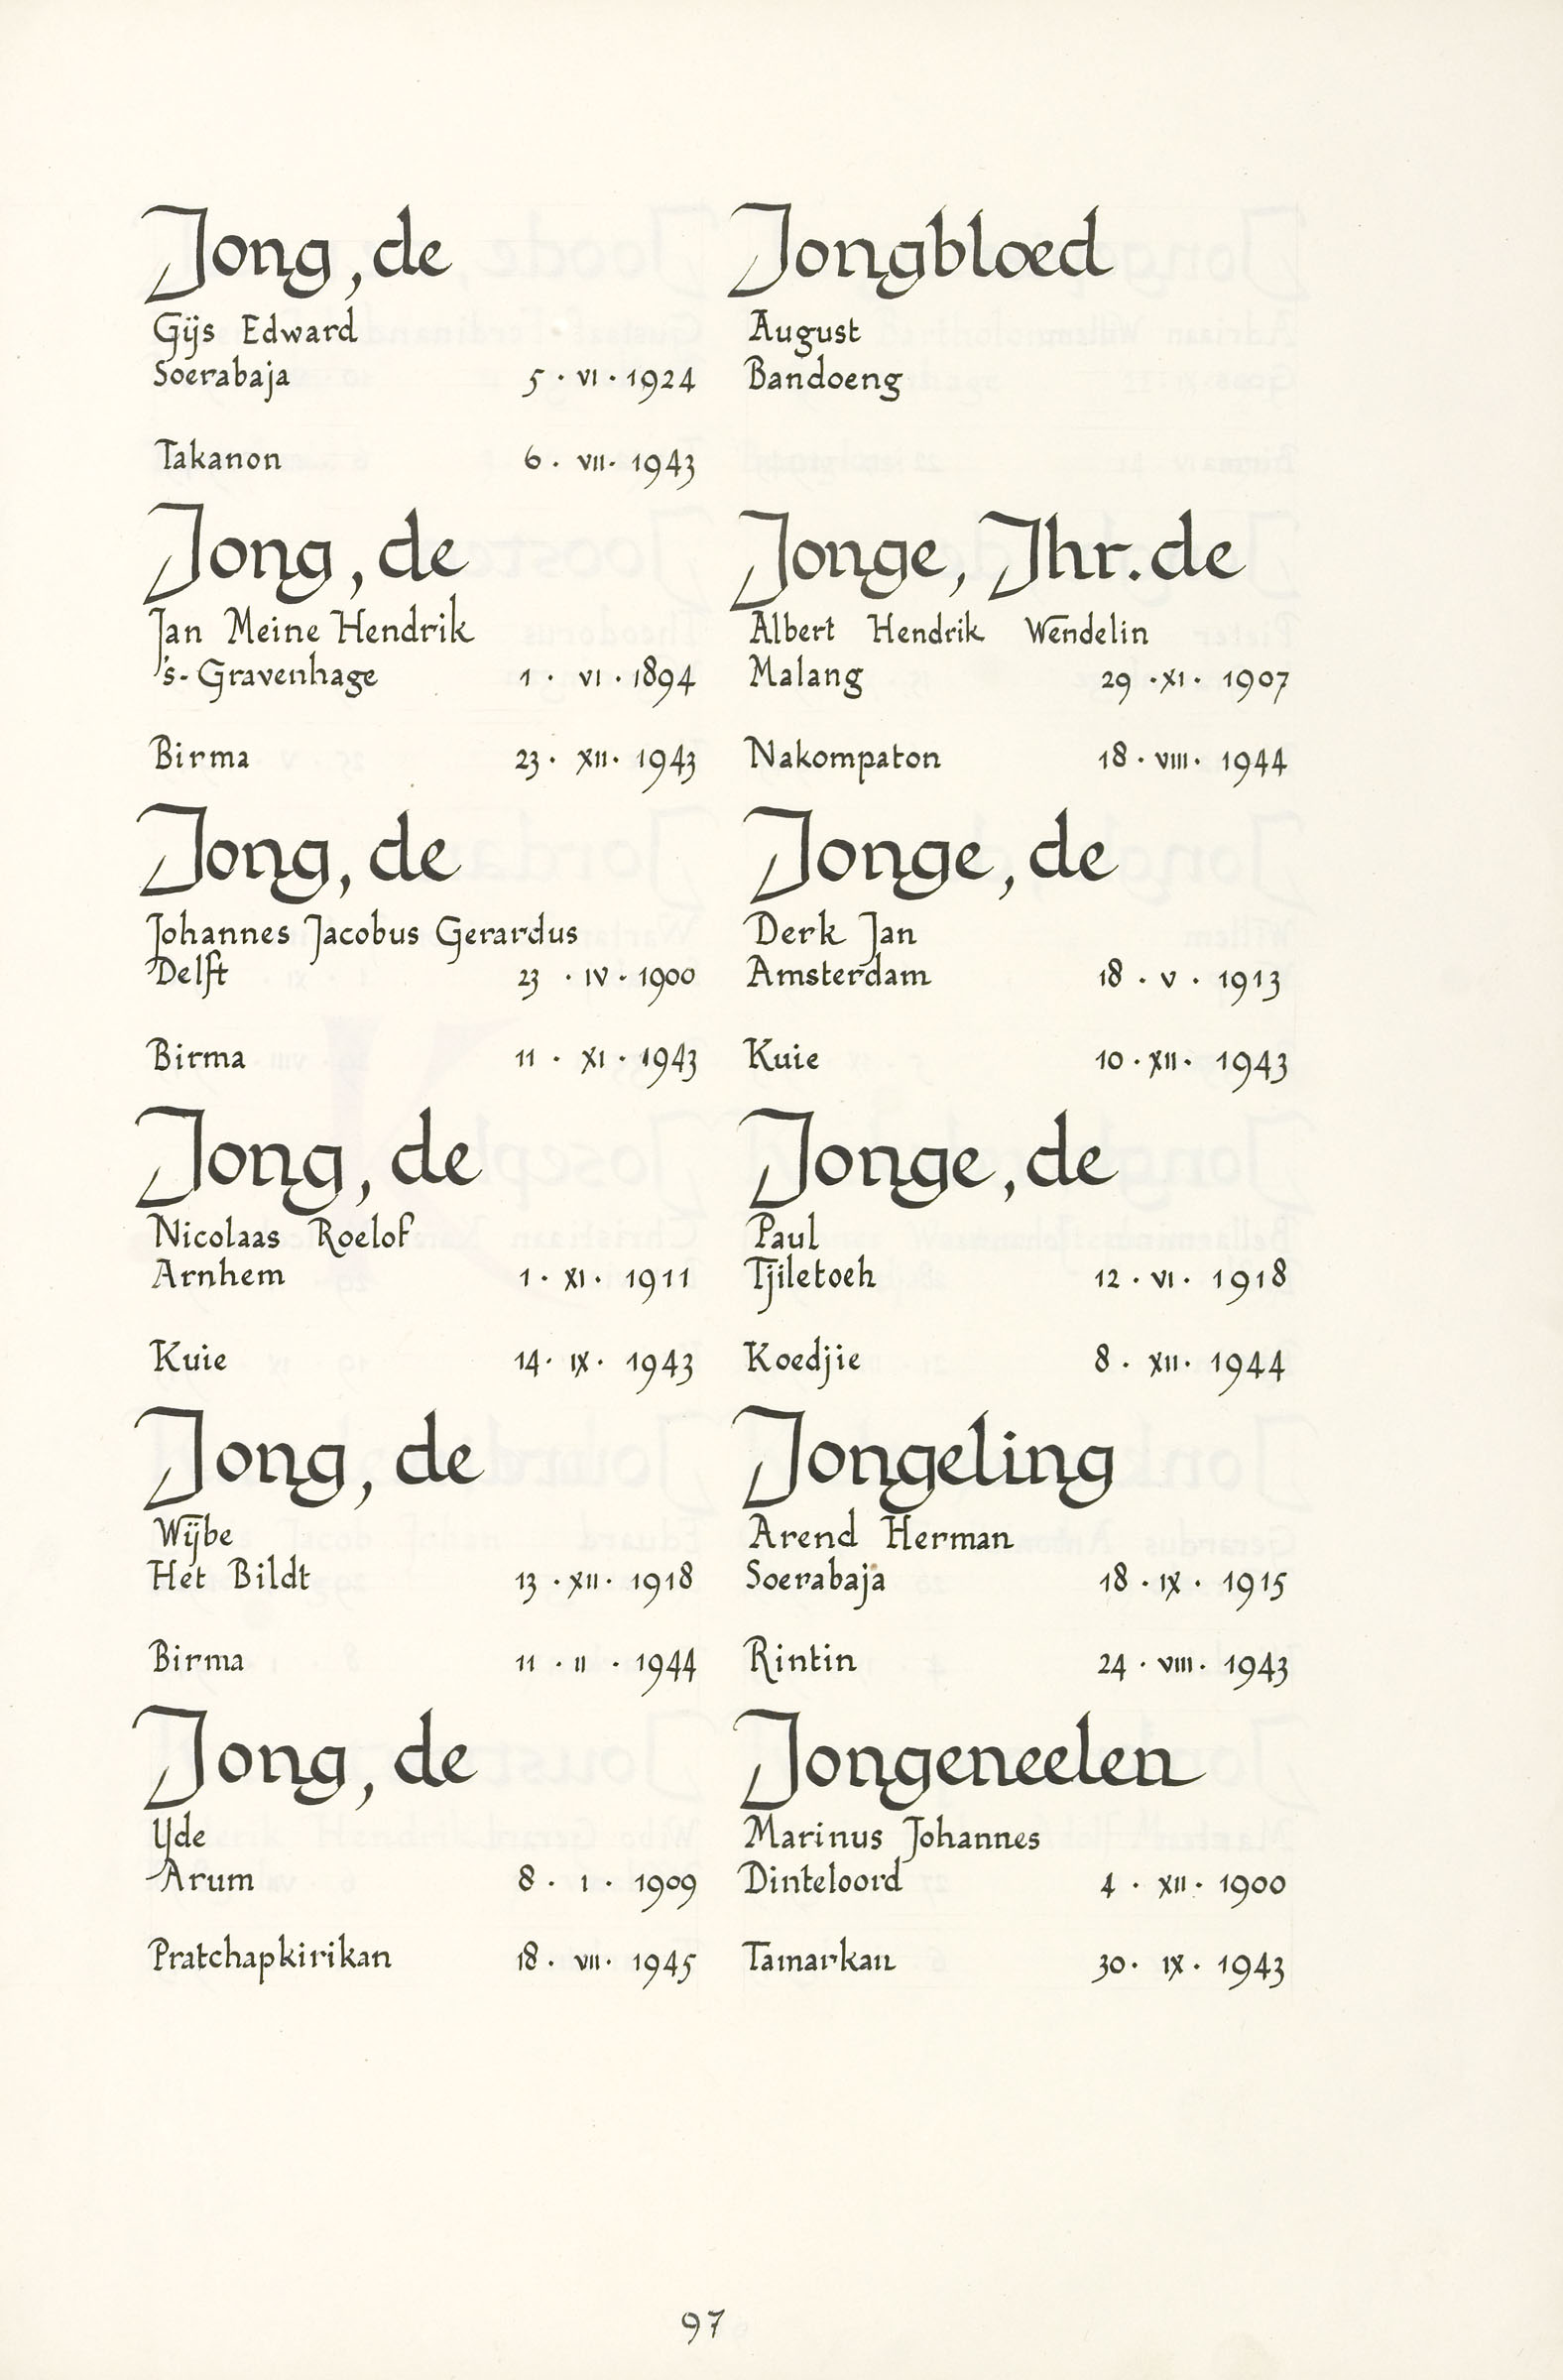 Jong, de
Gijs Edward
Soerabaja 5 · VI · 1924
Takanon 6 · VII · 1943
Jong, de
Jan Meine Hendrik
's-Gravenhage 1 · VI · 1894
Birma 23 · XII · 1943
Jong, de
Johannes Jacobus Gerardus
Delft 23 · IV · 1900
Birma 11 · XI · 1943
Jong, de
Nicolaas Roelof
Arnhem 1 · XI · 1911
Kuie 14 · IX · 1943
Jong, de
Wijbe
Het Bildt 13 · XII · 1918
Birma 11 · II · 1944
Jong, de
Yde
Arum 8 · I · 1909
Pratchapkirikan 18 · VII · 1945
Jongbloed
August
Bandoeng
Jonge, Jhr. de
Albert Hendrik Wendelin
Malang 29 · XI · 1907
Nakompaton 18 · VIII · 1944
Jonge, de
Derk Jan
Amsterdam 18 · V · 1913
Kuie 10 · XII · 1943
Jonge, de
Paul
Tjiletoeh 12 · VI · 1918
Koedjie 8 · XII · 1944
Jongeling
Arend Herman
Soerabaja 18 · IX · 1915
Rintin 24 · VIII · 1943
Jongeneelen
Marinus Johannes
Dinteloord 4 · XII · 1900
Tamarkan 30 · IX · 1943
97